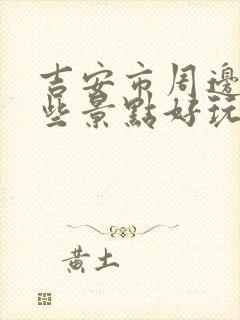 吉安市周邊
些景點好玩
黃土